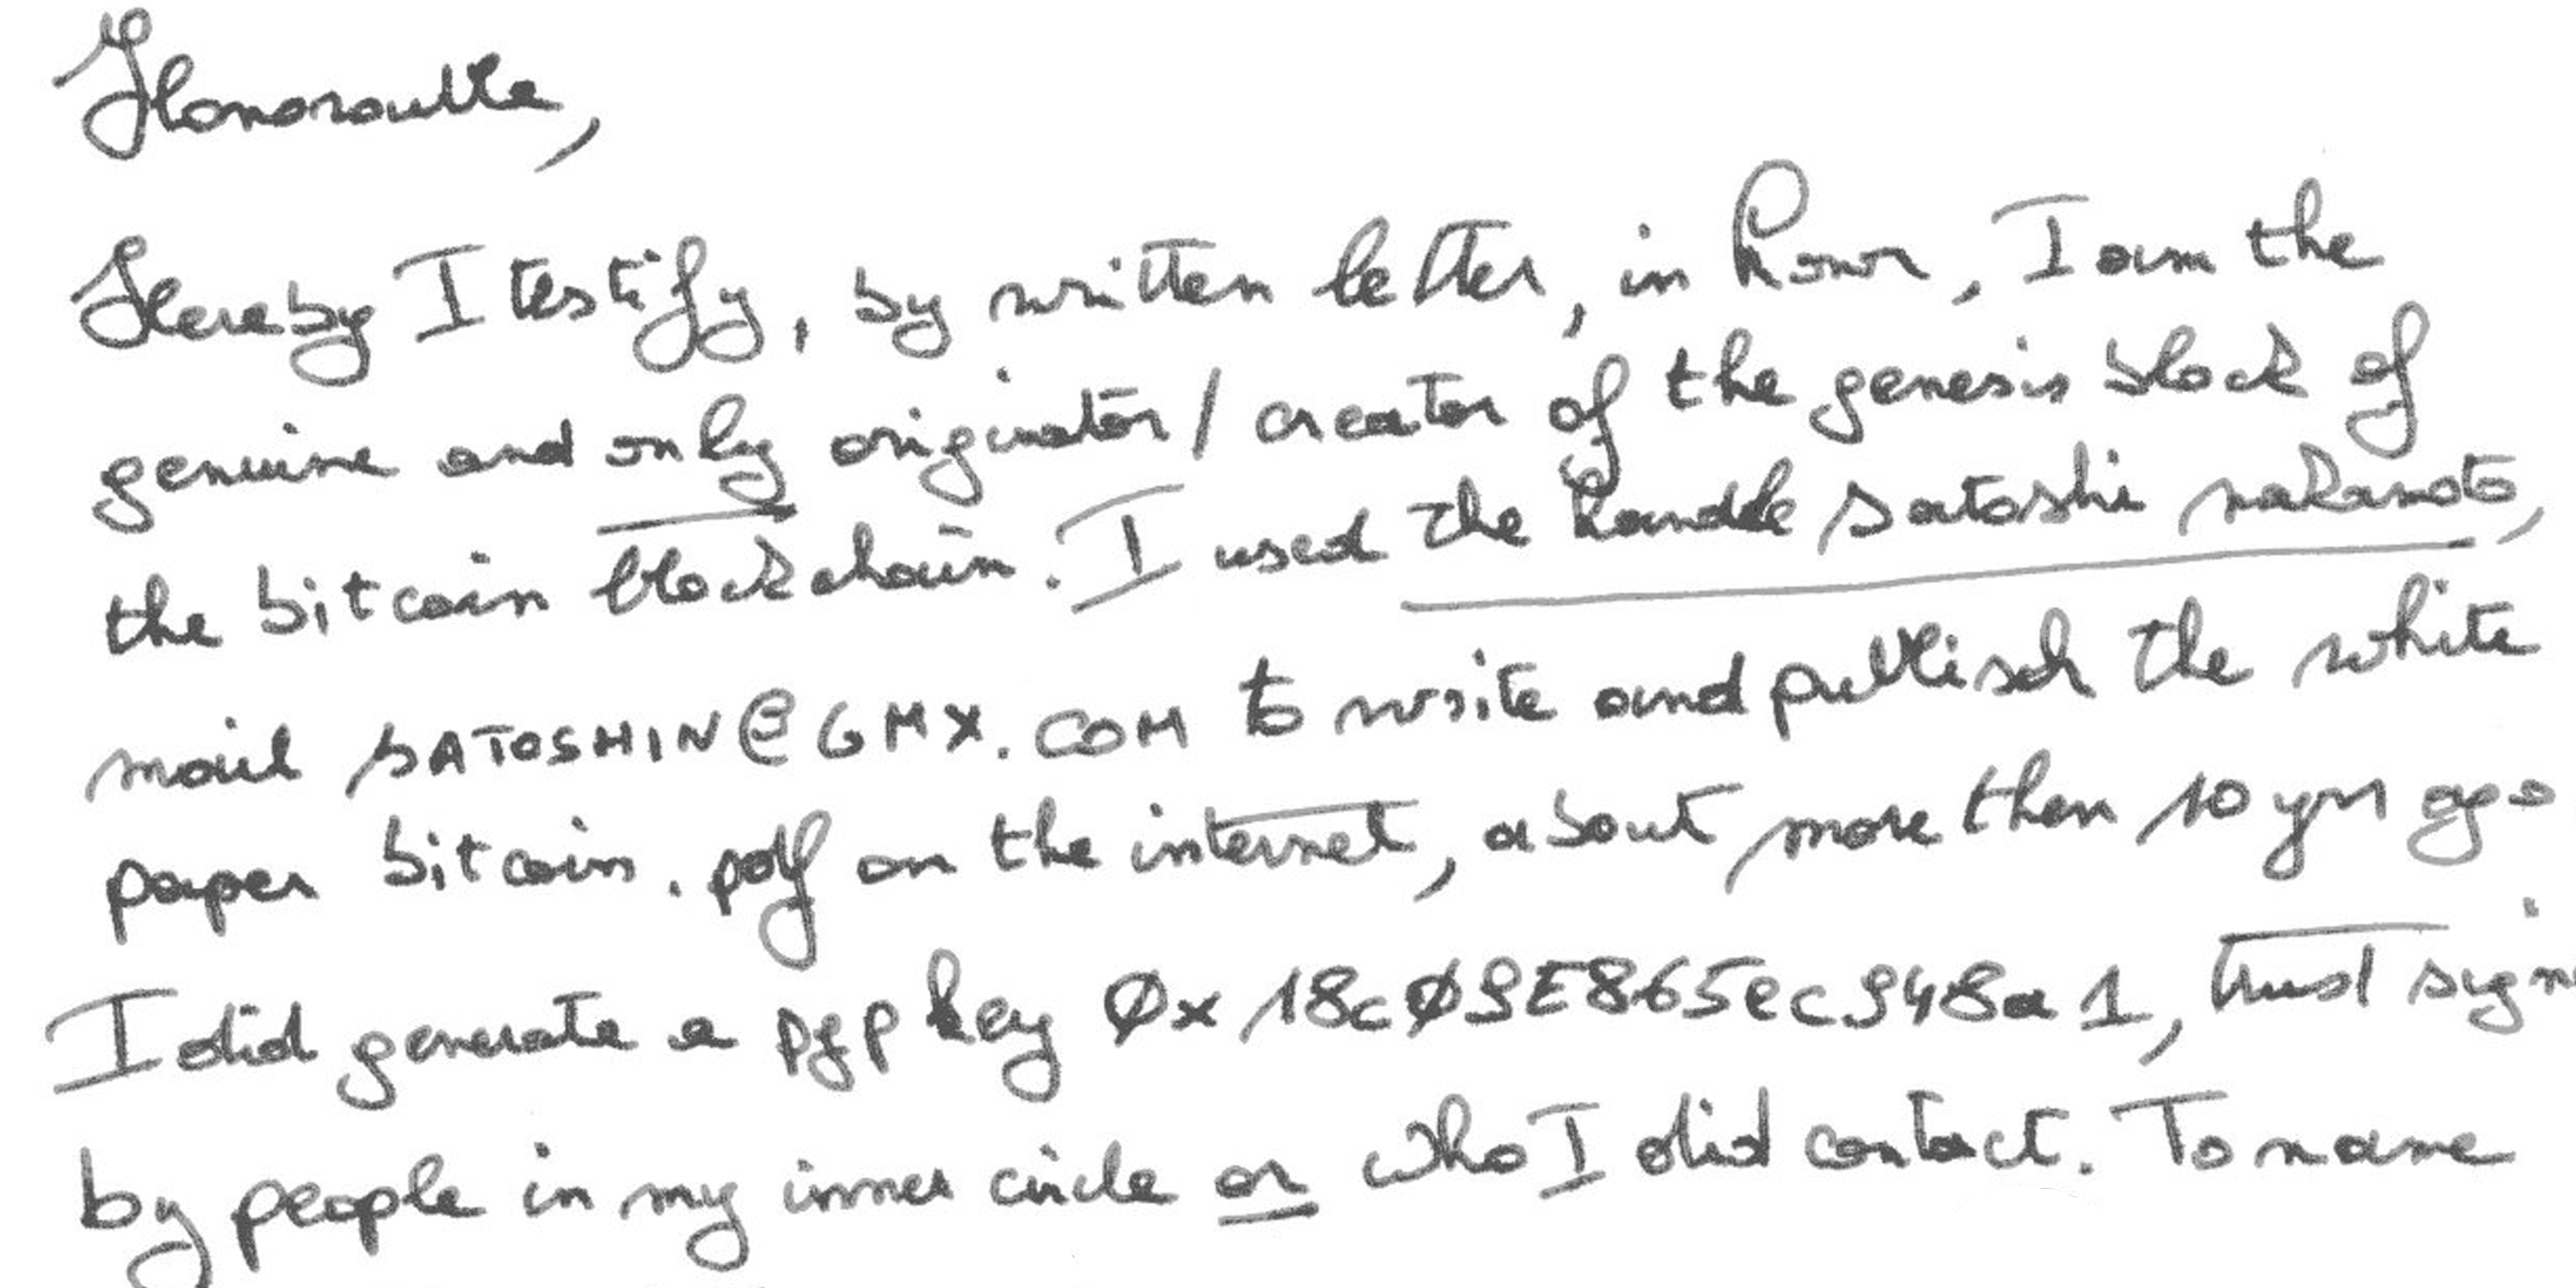 Honorouble,
Hereby I testify, by written letter, in honor, I am the
genuine and only originator/creator of the genesis block of
the bitcoin blockchain. I used the handle satoshi nakamoto,
mail SATOSHIN@GMX.COM to write and publisch the white
paper bitcoin.pdf on the internet, about more then 10 yrs ago
I did generate a pgp key 0x18c09E865ec948a1, trust sign
by people in my inner circle or who I did contact. To name